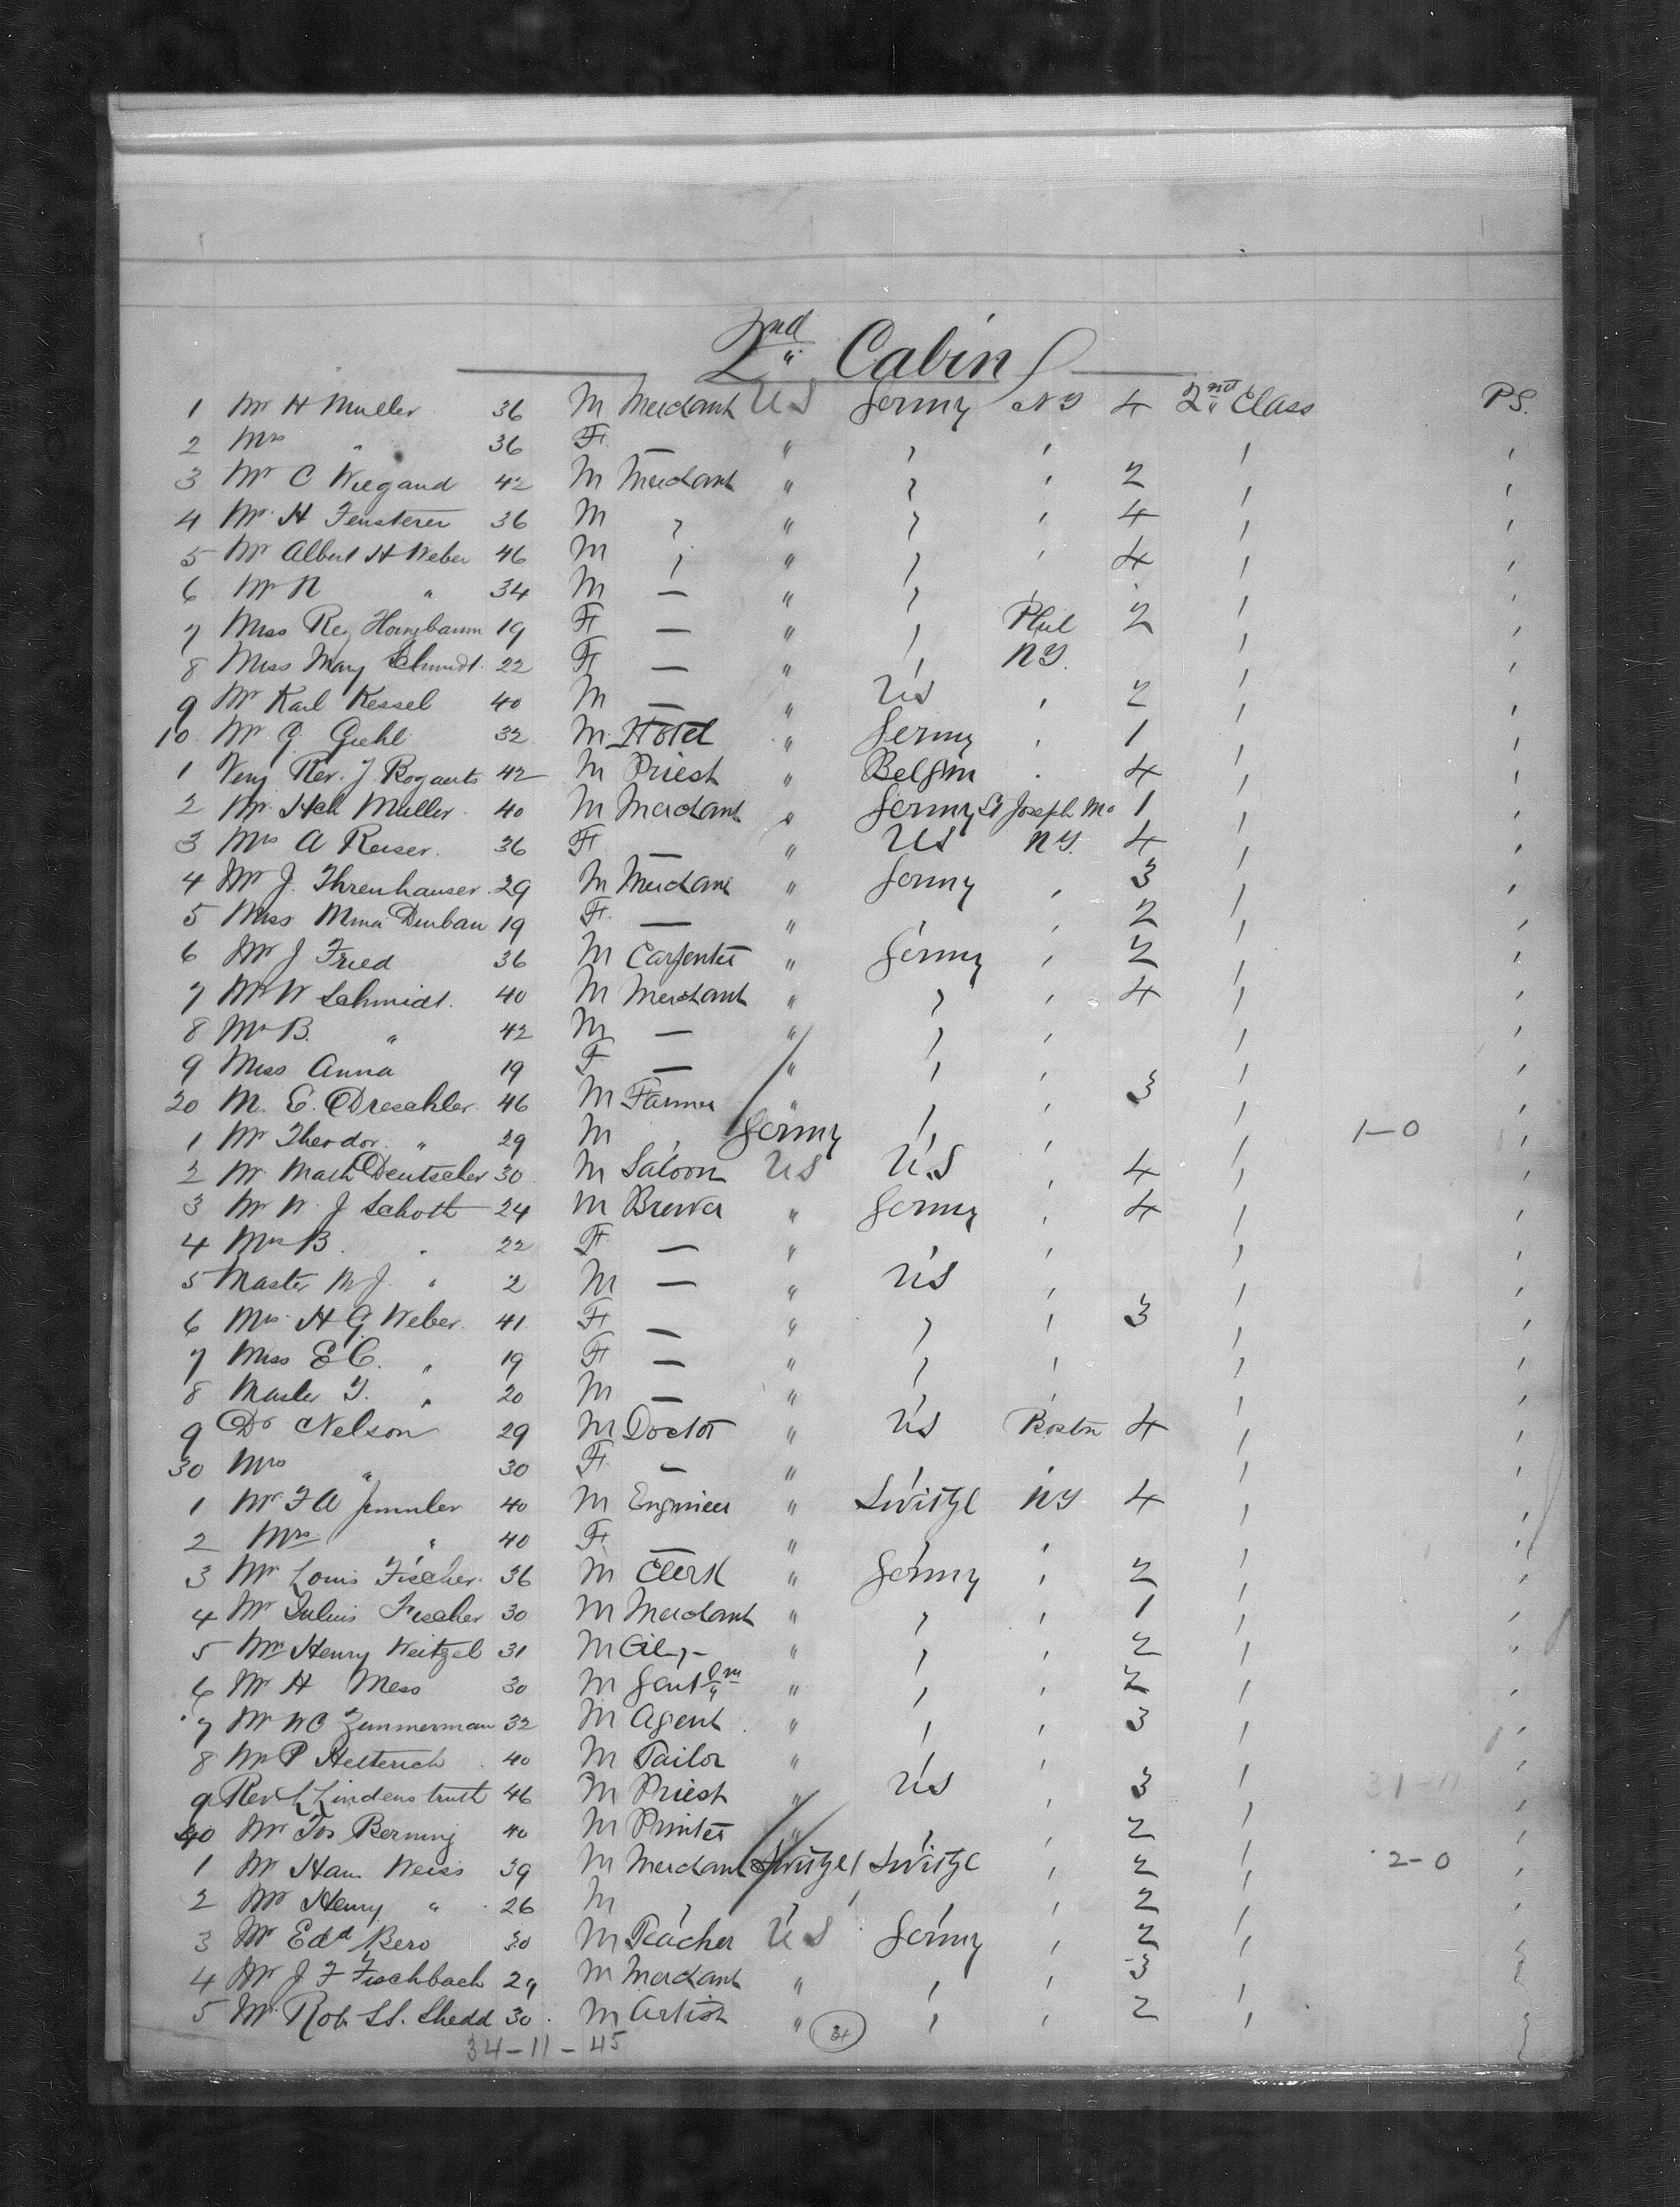 2nd Cabin
1 Mr H Muller 36 M Merchant US Germy NY 4 2nd Class PS.
2 Mrs " 36 F — " ' ' ' '
3 Mr C Wiegand 42 M Merchant " ' ' 2 ' '
4 Mr H Fensterer 36 M ' " ' ' 4 ' '
5 Mr Albert H Weber 46 M ' " ' ' 4 ' '
6 Mr N " 34 M — " ' ' ' '
7 Miss Reg 19 F — " ' Phil 2 ' '
8 Miss Mary Schmidt 22 F — " ' NY. ' '
9 Mr Karl Kessel 40 M — " US ' 2 ' '
10 Mr G. Giehl 32 M Hotel " Germy ' 1 ' '
1 Very Rev. J. Bogaerts 42 M Priest " Belgim ' 4 ' '
2 Mr. Hch Muller 40 M Merchant " Germy St Joseph Mo 1 ' '
3 Mrs A Reiser 36 F — " US NY. 4 ' '
4 Mr J. Ihrenhauser 29 M Merchant " Germy ' 3 ' '
5 Miss Mina 19 F — " ' ' 2 ' '
6 Mr J Fried 36 M Carpenter " Germy ' 2 ' '
7 Mr W Schmidt. 40 M Merchant " ' ' 4 ' '
8 Mr B. " 42 M — " ' ' ' '
9 Miss Anna 19 F — " ' ' ' '
20 M. E. Dreschler 46 M Farmer " ' ' 3 ' '
1 Mr Theodor " 29 M ' Germy ' ' ' 1-0 '
2 Mr. Deutscher 30 M Saloon US US ' 4 ' '
3 Mr W. J Schoth 24 M Brewer " Germy ' 4 ' '
4 Mrs B. " 22 F — " ' ' ' '
5 Master M J. " 2 M — " US ' ' '
6 Mrs H G Weber 41 F — " ' ' 3 ' '
7 Miss E C. " 19 F — " ' ' ' '
8 Master " 20 M — " ' ' ' '
9 Dr Nelson 29 M Doctor " US Boston 4 ' '
30 Mrs " 30 F — " ' ' ' '
1 Mr F A 40 M Engineer " Switzl NY 4 ' '
2 Mrs " 40 F — " ' ' ' '
3 Mr Louis Fischer 36 M Clerk " Germy ' 2 ' '
4 Mr Julius Fischer 30 M Merchant " ' ' 1 ' '
5 Mr Henry Weitzel 31 M " ' ' 2 ' '
6 Mr H Mess 30 M Gentlm " ' ' 2 ' '
7 Mr W C Zimmerman 32 M Agent " ' ' 3 ' '
8 Mr P Helterich 40 M Tailor " ' ' ' '
9 Rev L Lindenstruth 46 M Priest " US ' 3 ' 31-11 '
40 Mr Jos Berning 40 M Printer " ' ' 2 ' '
1 Mr Hans Weiss 39 M Merchant Switzl Switzl ' 2 ' 2-0 '
2 Mr Henry " 26 M ' ' ' ' 2 ' '
3 Mr Edd Bero 30 M Teacher US Germy ' 2 ' '
4 Mr J F Fischbach 29 M Merchant " ' ' 3 ' '
5 Mr Rob. St. Shedd 30 M Artist " ' ' 2 '
34-11-45
31